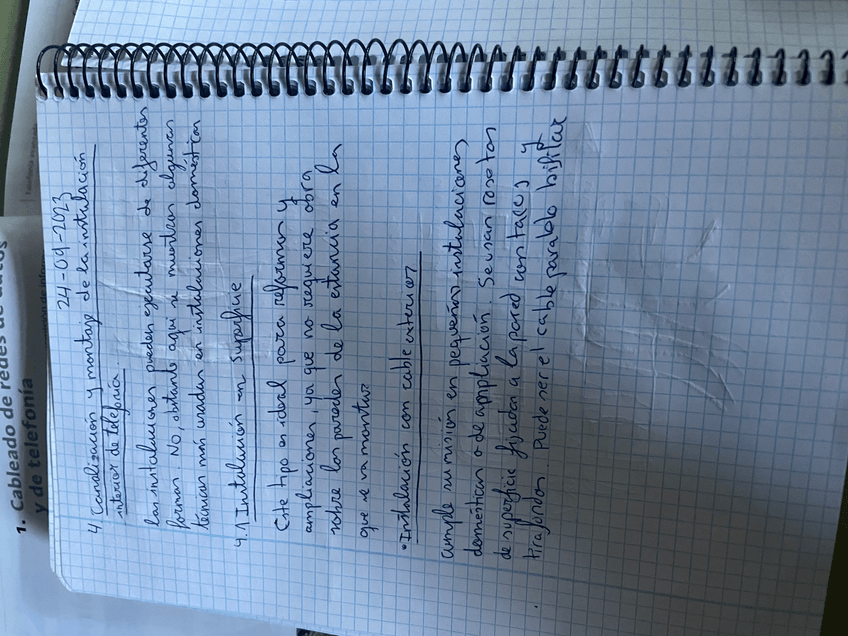 24-09-2023
4. Canalización y montaje de la instalación
interior de telefonía
Las instalaciones pueden ejecutarse de diferentes
formas. No, obstando aquí se muestras algunas
técnicas más usadas en instalaciones domésticas
4.1 Instalación en superficie
Este tipo es ideal para reformas y
ampliaciones, ya que no requiere obra
sobre las paredes de la estancia en la
que se va montar
• Instalación con cable exterior
Cumple su misión en pequeñas instalaciones
domésticas o de ampliación. Se usan rosetas
de superficie fijadas a la pared con tacos y
tirafondos. Puede ser el cable paralelo bifilar
1. Cableado de redes de datos
y de telefonía